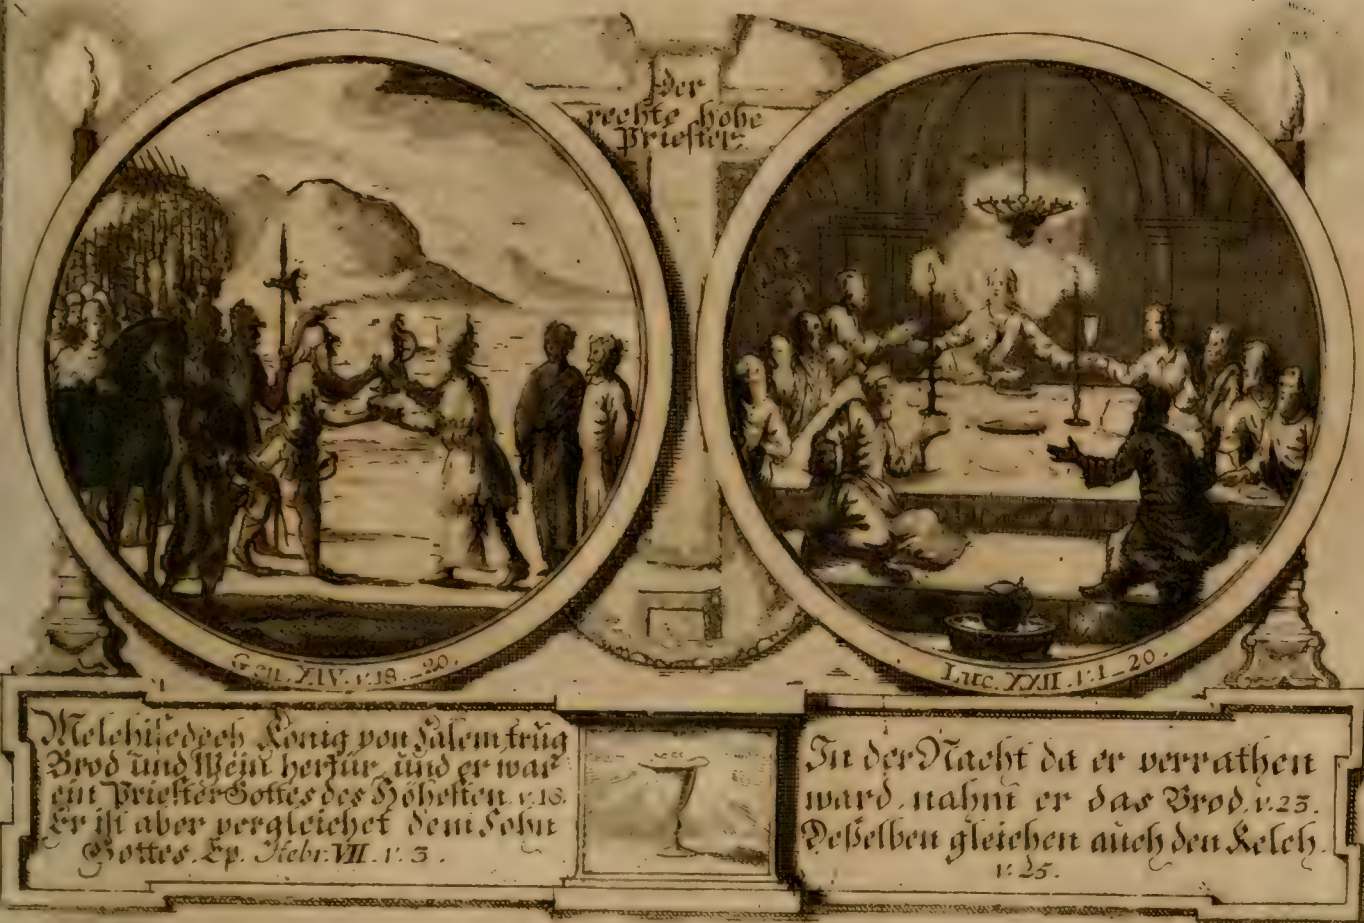 Der
rechte hohe
Priester.
Gen. XIV. v. 18 – 20.
Luc. XXII. v. 1 – 20.
Melchisedech König von Salem trug
Brod und Wein herfür, und er war
ein Priester Gottes des Höhesten. v. 18.
Er ist aber vergleichet dem Sohn
Gottes. Ep. Hebr. VII. v. 3.
In der Nacht da er verrathen
ward, nahm er das Brod. v. 23.
Deßelben gleichen auch den Kelch.
v. 25.